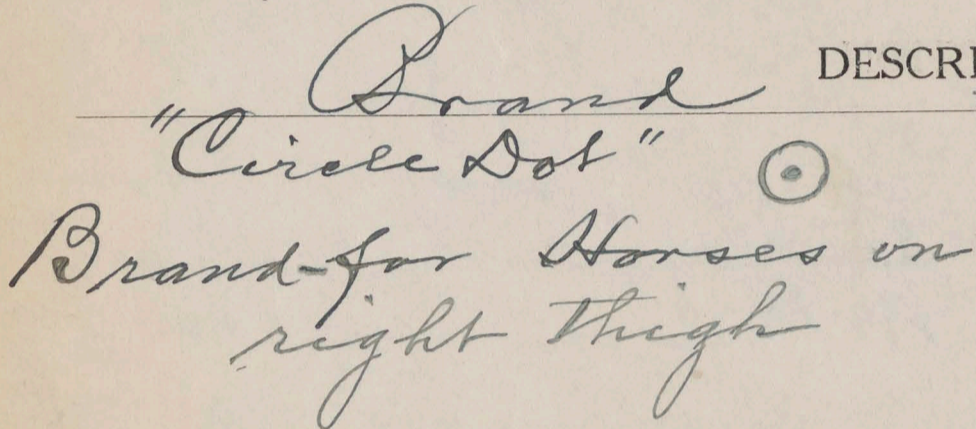 Brand DESCRI
"Circle Dot" ⊙
Brand-for Horses on
right thigh